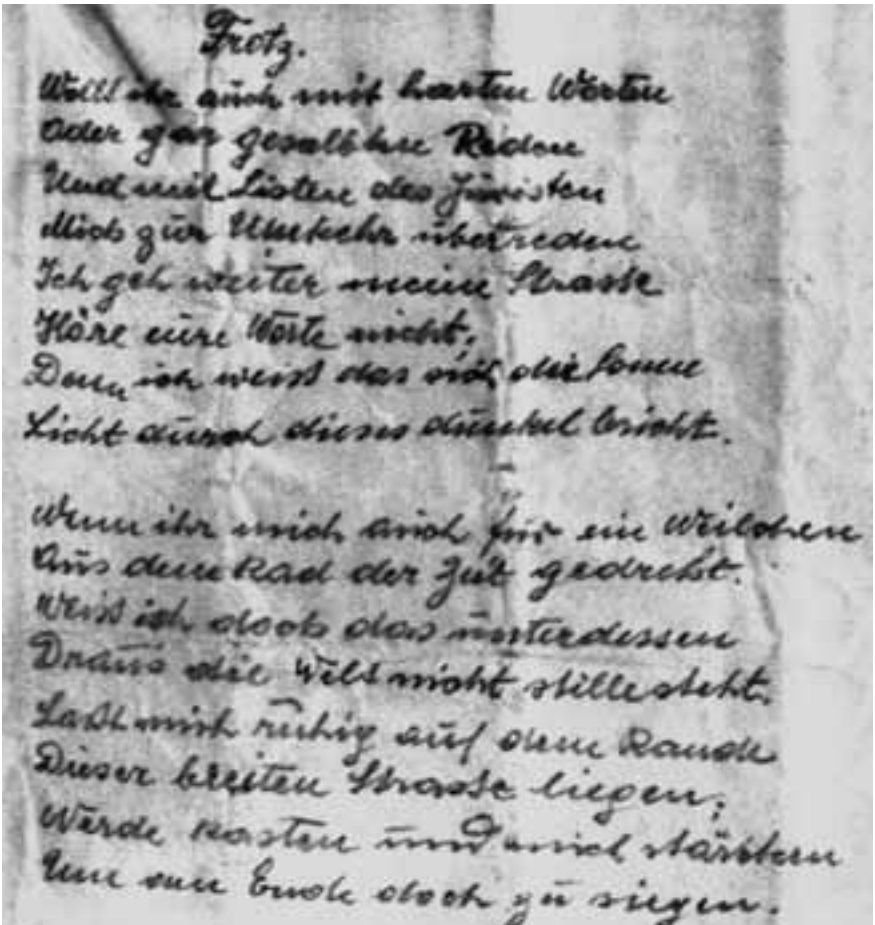 Trotz.
Wollt ihr auch mit harten Worten
Oder gar gesalbten Reden
Und mit Listen des Juristen
Mich zur Umkehr überreden
Ich geh weiter meine Strasse
Höre eure Worte nicht,
Denn ich weiss das mir die Sonne
Licht durch dieses dunkel bricht.
Wenn ihr mich auch für ein Weilchen
Aus dem Rad der Zeit gedreht.
Weiss ich doch das unterdessen
Draus die Welt nicht stillesteht.
Lasst mich ruhig auf dem Rande
Dieser breiten Strasse liegen;
Werde rasten und mich stärken
Um am Ende doch zu siegen.